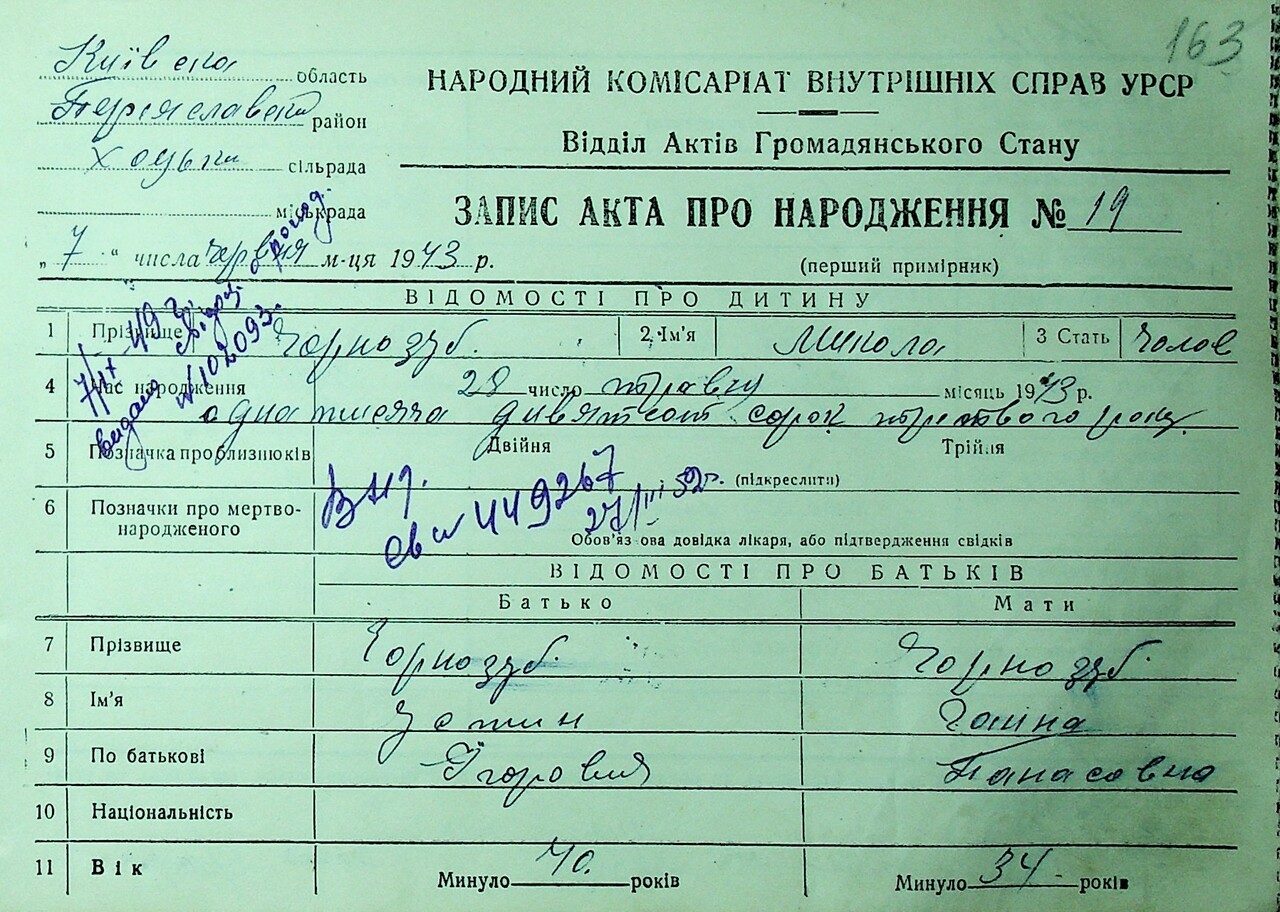 163
Київська область
Переяславський район
Хоцьки сільрада
міськрада
НАРОДНИЙ КОМІСАРІАТ ВНУТРІШНІХ СПРАВ УРСР
Відділ Актів Громадянського Стану
ЗАПИС АКТА ПРО НАРОДЖЕННЯ № 19
„ 7 “ числа червня м-ця 1943 р.
(перший примірник)
ВІДОМОСТІ ПРО ДИТИНУ
1 Прізвище Чорнозуб. 2. Ім'я Микола 3 Стать Чолов
4 Час народження 28 число травня місяць 1943 р.
одна тисяча дивятсот сорок третього року
видана
№ 102093.
5 Позначка про близнюків Двійня Трійля
(підкреслити)
6 Позначки про мертво-
народженого
св № 449267
27/III 52г.
Обов'яз ова довідка лікаря, або підтвердження свідків
ВІДОМОСТІ ПРО БАТЬКІВ
Батько Мати
7 Прізвище Чорнозуб. Чорнозуб.
8 Ім'я Устин Ганна
9 По батькові Панасовна
10 Національність
11 Вік Минуло 40. років Минуло 34 років